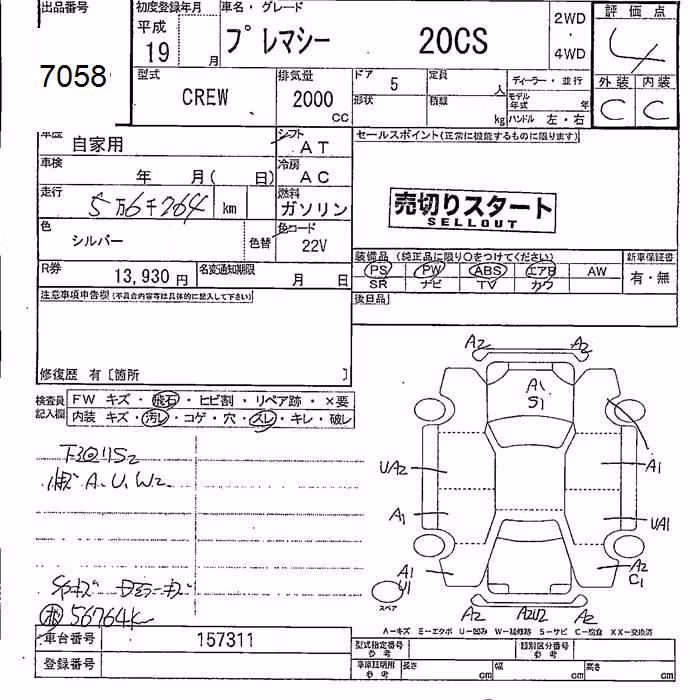 出品番号
7058
初度登録年月
平成
19 月
車名・グレード
プレマシー 20CS
2WD
・
4WD
評価点
4
外装 内装
C C
型式
CREW
排気量
2000
CC
ドア
5
定員
人
形状
積載
kg
ディーラー・並行
モデル
年式 年
ハンドル 左・右
車歴
自家用
シフト
AT
車検
年 月( 日)
冷房
AC
走行
5万6千764 km
燃料
ガソリン
色
シルバー
色替
色コード
22V
R券
13,930 円
名変通知期限
月 日
セールスポイント(正常に機能するものに限ります)
売切りスタート
SELLOUT
装備品 (純正品に限り○をつけてください)
PS PW ABS エアB AW
SR ナビ TV カワ
新車保証書
有・無
後日品
注意事項申告欄(不具合内容等は具体的に記入して下さい)
修復歴 有〔箇所 〕
検査員
記入欄
FW キズ・飛石・ヒビ割・リペア跡・×要
内装 キズ・汚レ・コゲ・穴・スレ・キレ・破レ
A.U.W2
56764k
車台番号
157311
登録番号
A2 A2
A1
S1
UA2
A1
A1
UA1
A1
U1
A2
C1
スペア
A2 A2U2 A2
A―キズ E―エクボ U―凹み W―補修跡 S―サビ C―腐食 XX―交換済
型式指定番号
参考
類別区分番号
参考
車庫証明用
参考
長さ cm
幅 cm
高さ cm